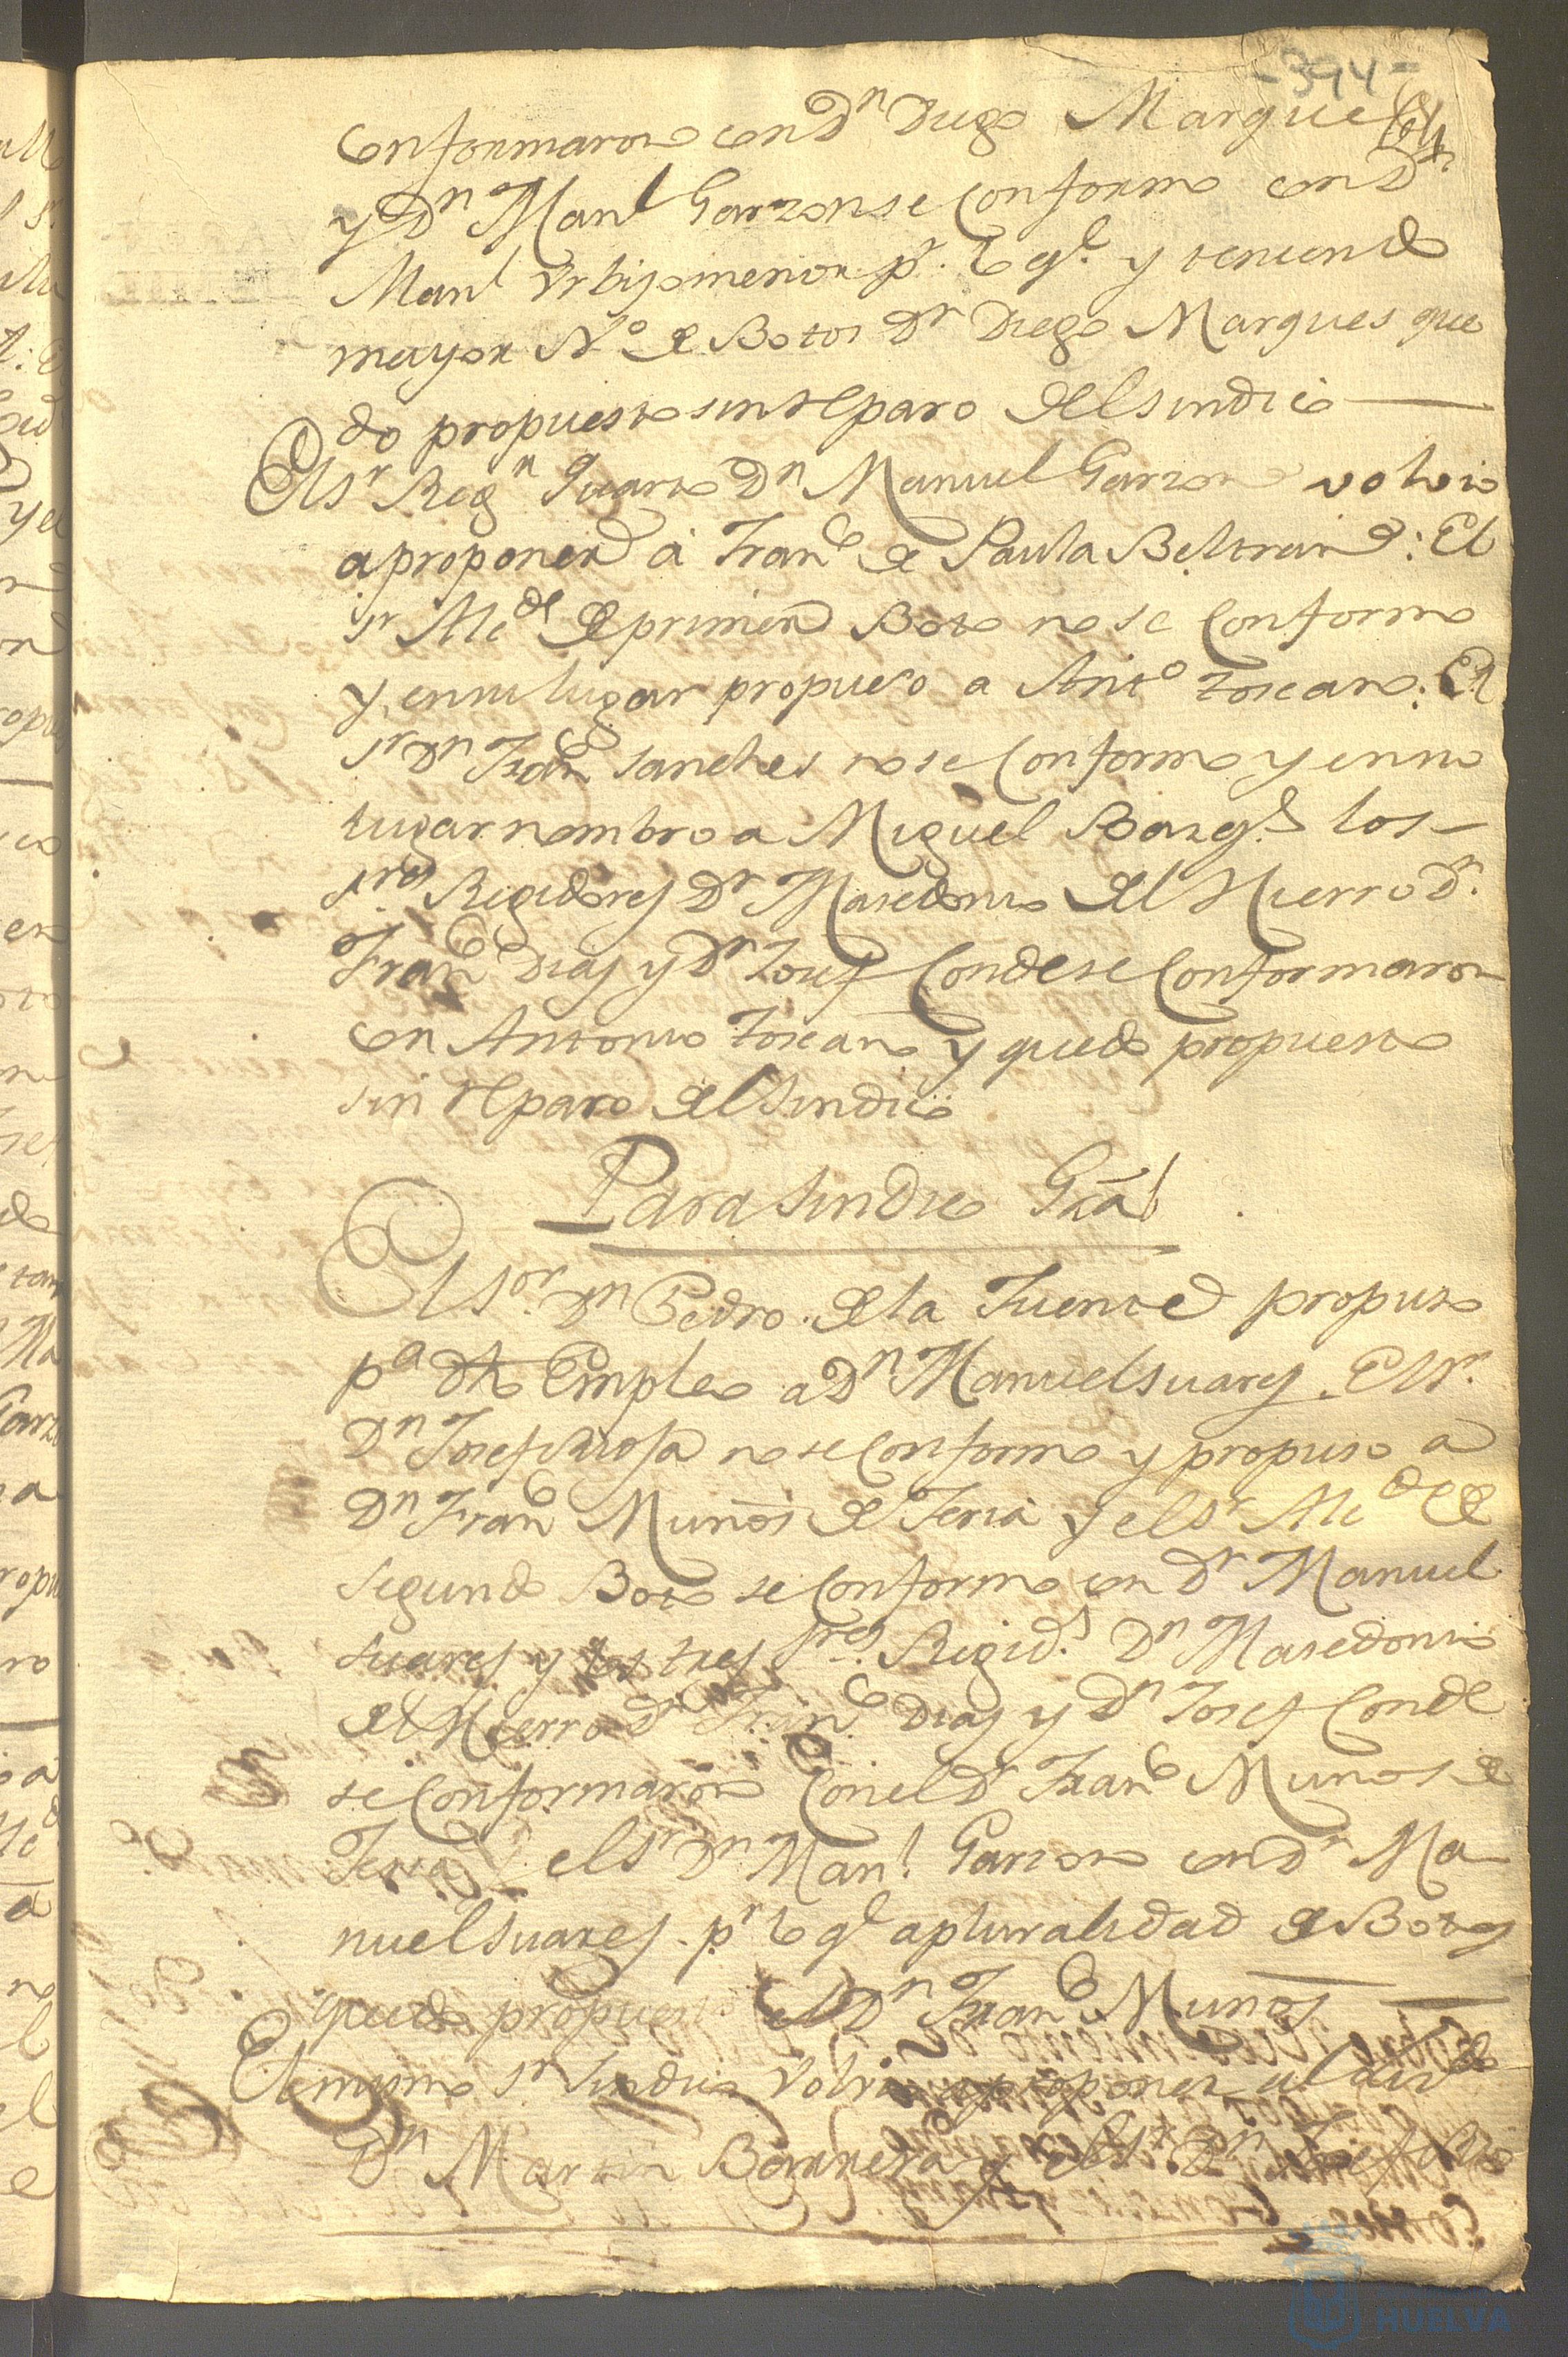 -394-
Conformaron con Dn Diego Marques
y Dn Manl Garzon se Conformo con Dn
Manl Urbijo menor pr lo ql y teniendo
mayor No de Botos Dn Diego Marques que
do propuesto sin reparo del sindico
El sr Regr quarto Dn Manuel Garzon volvio
a proponer á Franco de Paula Beltran: El
sr Alcde de primer Boto no se Conformo
y en su lugar propuso a Anto toscano: El
sr Dn Franco sanches no se Conformo y en su
lugar nombro a Miguel Bazqs los
sres Regidores Dn Masedonio del Hierro Dn
Franco Dias y Dn Josef Conde se Conformaron
con Antonio toscano y quedo propuesto
sin reparo del sindico
Para sindico Gral
El sor Dn Pedro de la Fuente propuso
pa dho Empleo a Dn Manuel suares. El sr
Dn Josef no se Conformo y propuso a
Dn Franco Muños de Feria y el sr Alcde de
segundo Boto se Conformo con Dn Manuel
suares y los tres sres Regids Dn Masedonio
del Hierro Dn Franco Dias y Dn Josef Conde
se Conformaron Con el Dn Franco Munos de
Feria y el sr Dn Manl Garzon con Dn Ma
nuel suares. pr lo ql a pluralidad de Botos
quedo propuesto el Dn Franco Munos
El mismo sr sindico Volvio a proponer al
Dn Martin Barrera y el sr Dn Josef
HUELVA